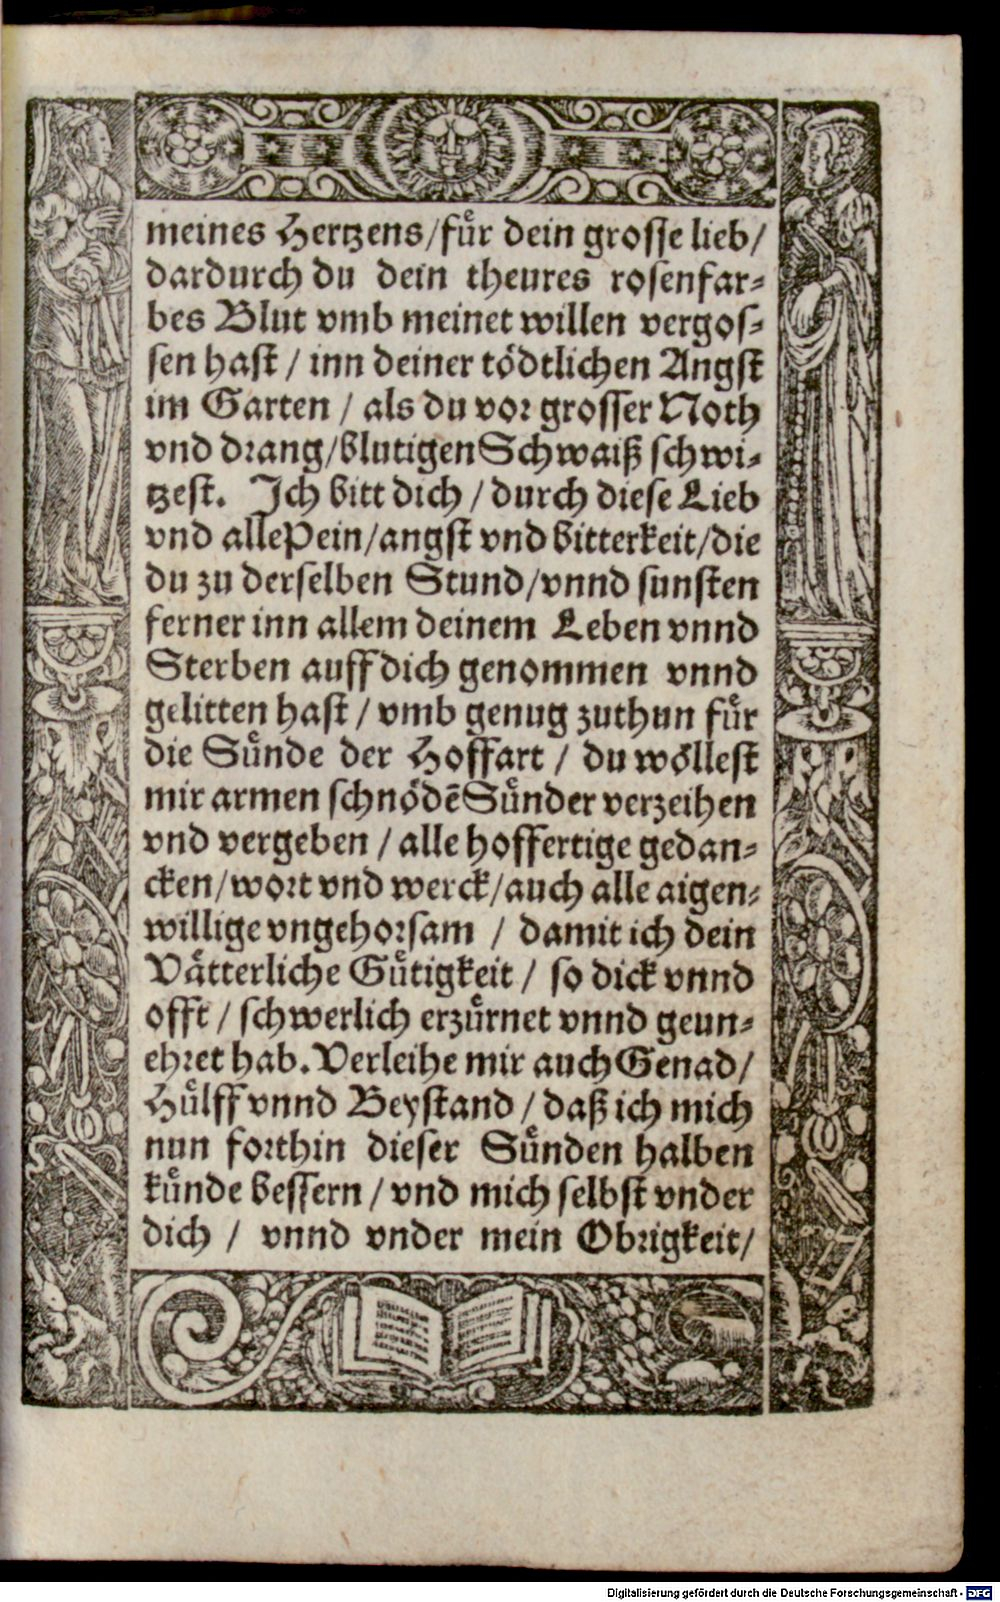 meines Hertzens/fuͤr dein grosse lieb/
dardurch du dein theures rosenfar⸗
bes Blut vmb meinet willen vergos⸗
sen hast / inn deiner toͤdtlichen Angst
im Garten / als du vor grosser Noth
vnd drang/blutigen Schwaiß schwi⸗
tzest. Ich bitt dich / durch diese Lieb
vnd alle Pein/angst vnd bitterkeit/die
du zu derselben Stund/vnnd sunsten
ferner inn allem deinem Leben vnnd
Sterben auff dich genommen vnnd
gelitten hast / vmb genug zuthun fuͤr
die Suͤnde der Hoffart / du woͤllest
mir armen schnoͤdē Suͤnder verzeihen
vnd vergeben / alle hoffertige gedan⸗
cken/wort vnd werck/auch alle aigen⸗
willige vngehorsam / damit ich dein
Vaͤtterliche Guͤtigkeit / so dick vnnd
offt / schwerlich erzuͤrnet vnnd geun⸗
ehret hab. Verleihe mir auch Genad/
Huͤlff vnnd Beystand / daß ich mich
nun forthin dieser Suͤnden halben
kuͤnde bessern / vnd mich selbst vnder
dich / vnnd vnder mein Obrigkeit/
Digitalisierung gefördert durch die Deutsche Forschungsgemeinschaft - DFG